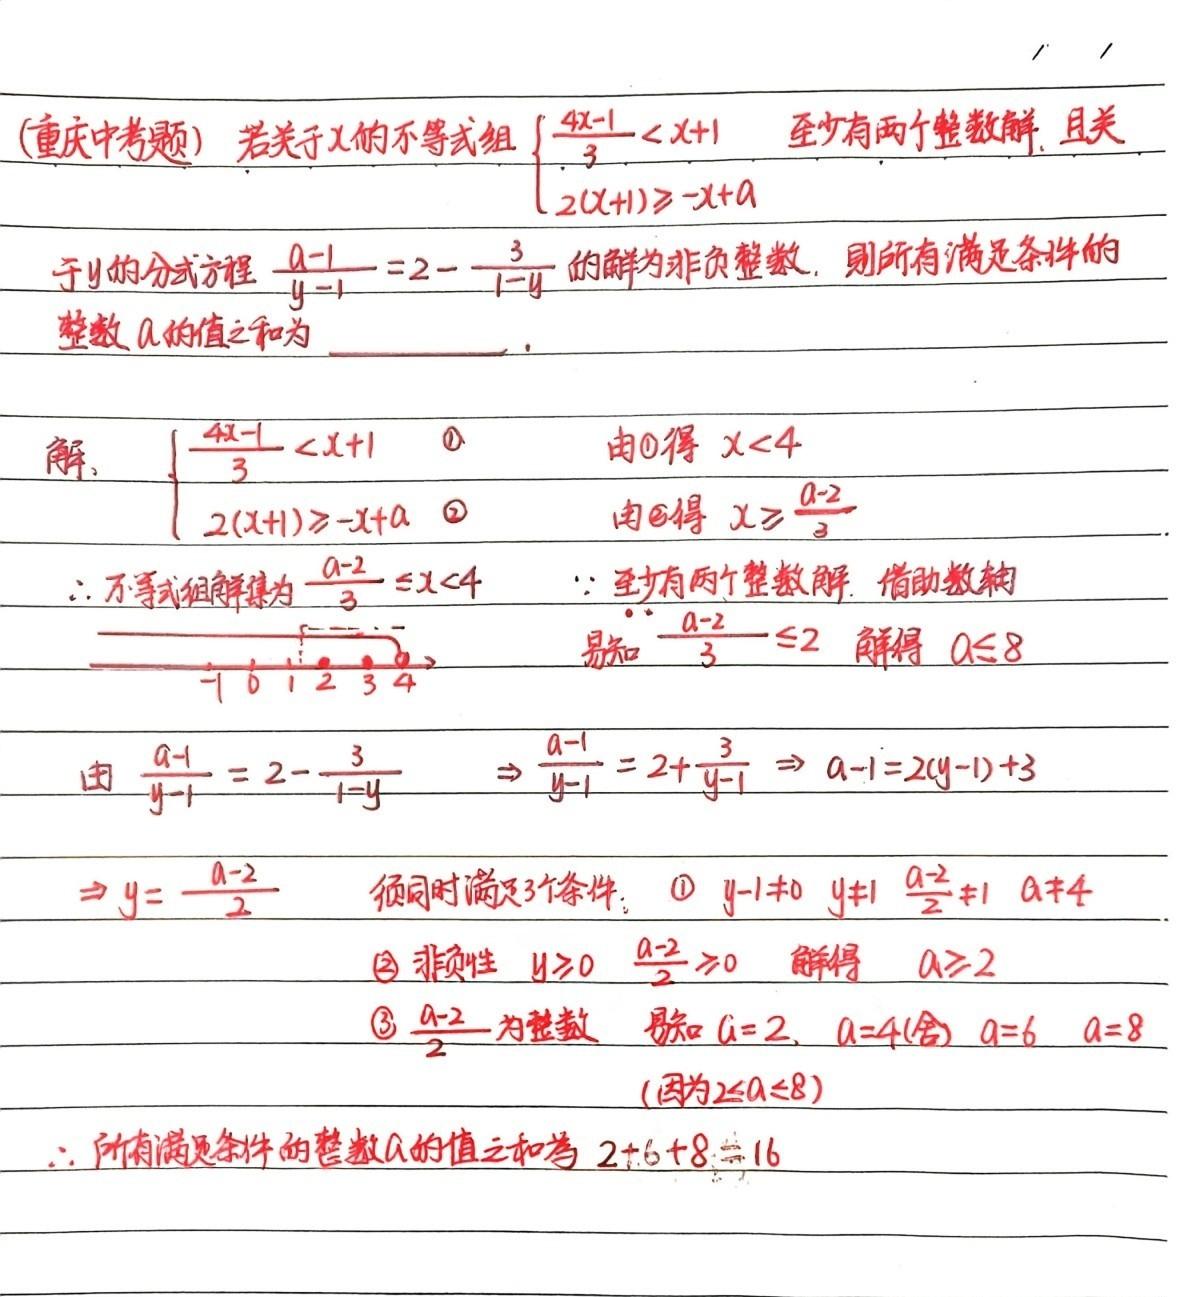 (重庆中考题) 若关于x的不等式组 { (4x-1)/3 < x+1 至少有两个整数解, 且关
2(x+1) ≥ -x+a
于y的分式方程 (a-1)/(y-1) = 2 - 3/(1-y) 的解为非负整数, 则所有满足条件的
整数 a 的值之和为 ________ .
解、 { (4x-1)/3 < x+1 ① 由①得 x<4
2(x+1) ≥ -x+a ② 由②得 x ≥ (a-2)/3
∴ 不等式组解集为 (a-2)/3 ≤ x < 4 ∵ 至少有两个整数解. 借助数轴
易知 (a-2)/3 ≤ 2 解得 a ≤ 8
-1 0 1 2 3 4
由 (a-1)/(y-1) = 2 - 3/(1-y) ⇒ (a-1)/(y-1) = 2 + 3/(y-1) ⇒ a-1 = 2(y-1)+3
⇒ y = (a-2)/2 须同时满足3个条件: ① y-1≠0 y≠1 (a-2)/2 ≠ 1 a≠4
② 非负性 y≥0 (a-2)/2 ≥ 0 解得 a≥2
③ (a-2)/2 为整数 易知 a=2、 a=4(舍) a=6 a=8
(因为2≤a≤8)
∴ 所有满足条件的整数a的值之和为 2+6+8=16